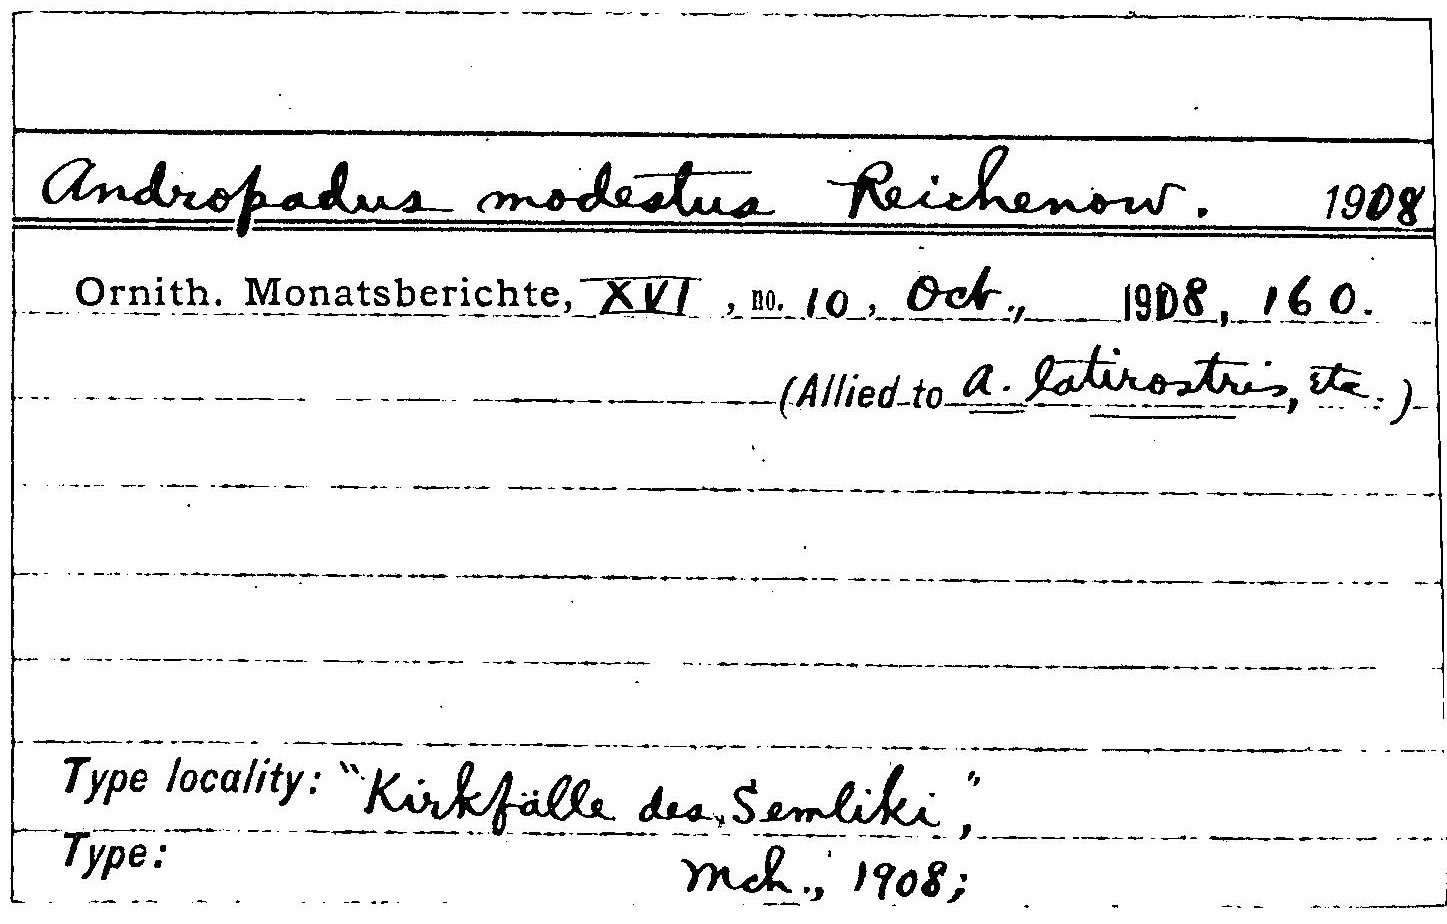 Andropadus modestus Reichenow. 1908
Ornith. Monatsberichte, XVI, no. 10, Oct., 1908, 160.
(Allied to A. latirostris, etc.)
Type locality: "Kirkfälle des Semliki",
Type: Mch., 1908;